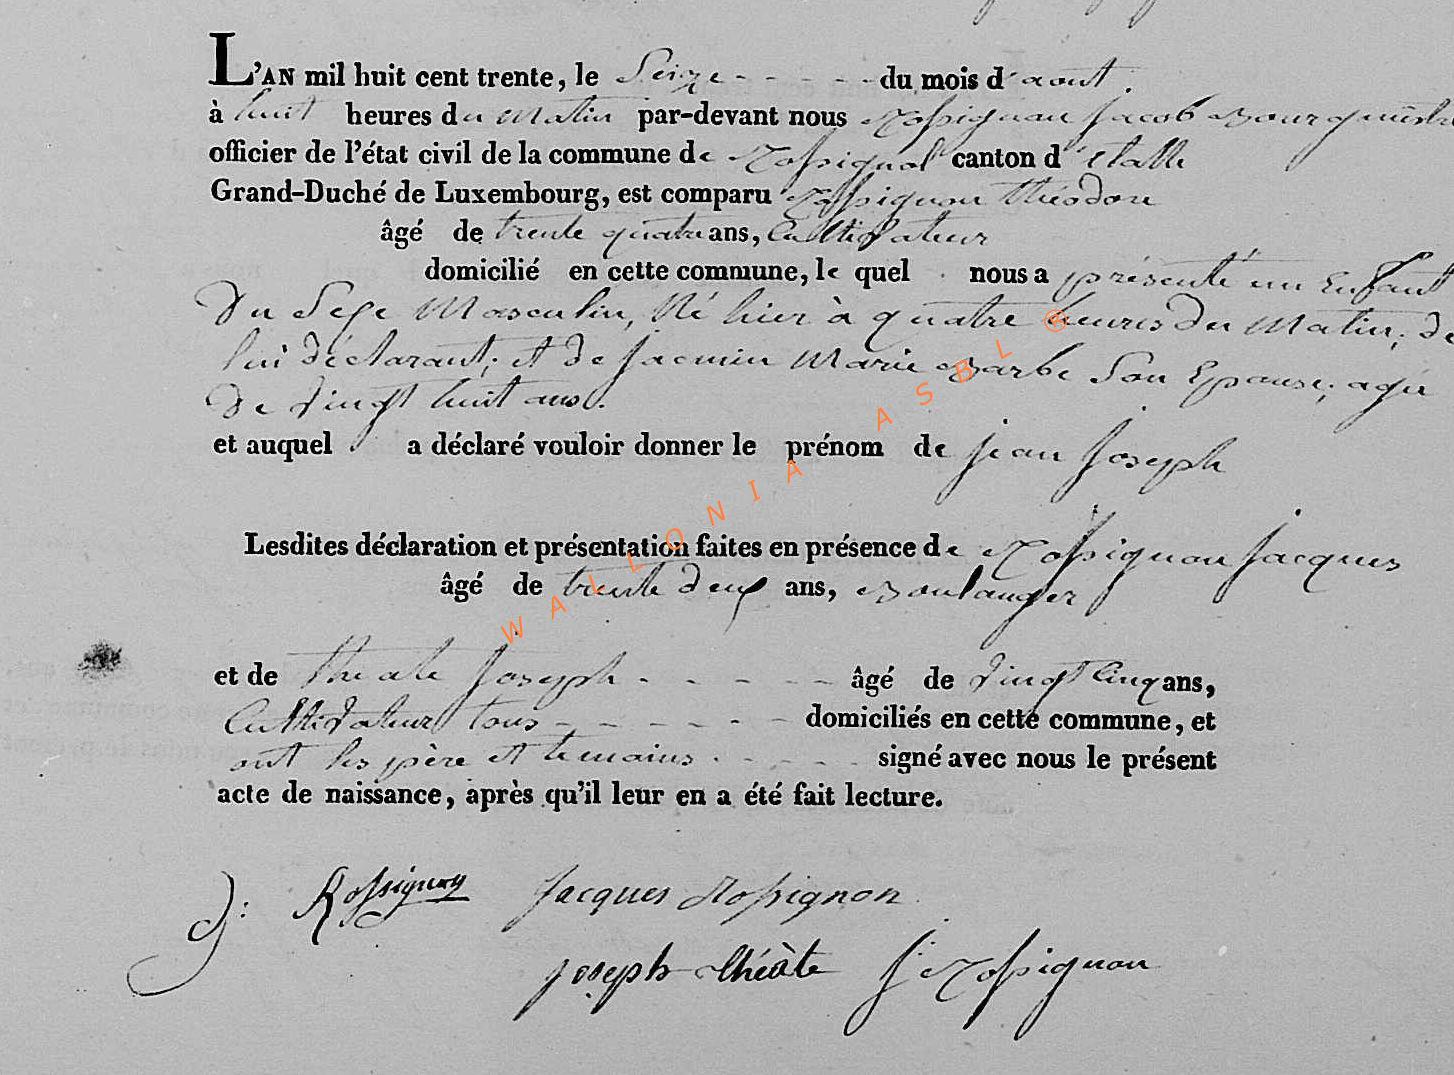 L'AN mil huit cent trente, le Seize - - - - - du mois d'aout.
à huit heures du Matin par-devant nous Rossignon Jacob Bourgmestre
officier de l'état civil de la commune de Rossignol canton d'Etalle
Grand-Duché de Luxembourg, est comparu Rossignon théodore
âgé de trente quatre ans, Cultivateur
domicilié en cette commune, le quel nous a présenté un Enfant
Du Sexe Masculin, Né hier à quatre heures du Matin, de
lui déclarant; et de Jacmin Marie Barbe Son Epouse; agée
De vingt huit ans.
et auquel a déclaré vouloir donner le prénom de jean Joseph
Lesdites déclaration et présentation faites en présence de Rossignon Jacques
âgé de trente deux ans, Boulanger
et de théate Joseph - - - - - âgé de vingt Cinq ans,
Cultivateur tous - - - - - - domiciliés en cette commune, et
ont les père et temoins - - - - signé avec nous le présent
acte de naissance, après qu'il leur en a été fait lecture.
Rossignon Jacques Rossignon
joseph théâte J. Rossignon
WALLONIA ASBL ®